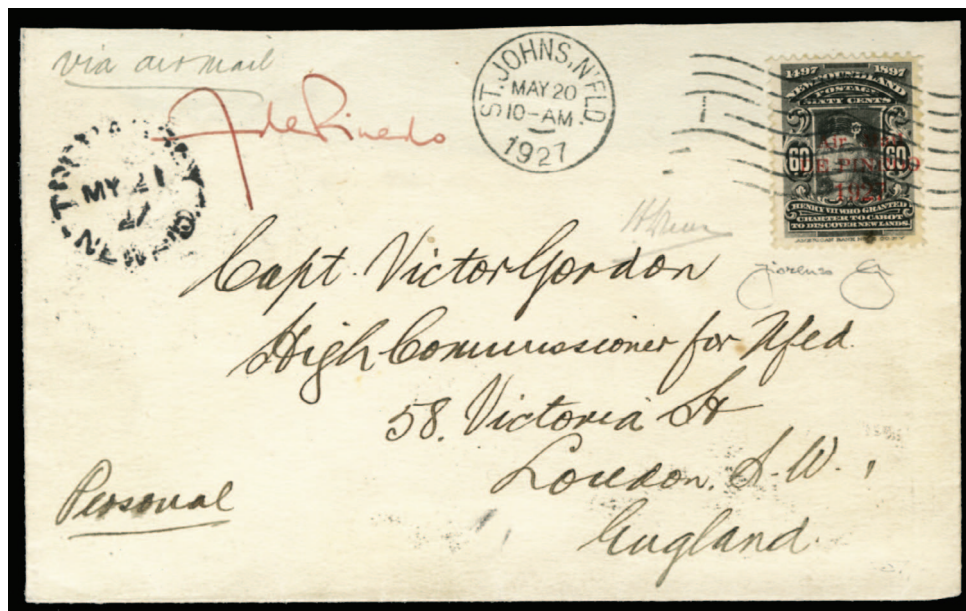 via air mail
F de Pinedo
ST. JOHNS, N'FLD.
MAY 20
10-AM
1927
1497 1897
NEWFOUNDLAND
POSTAGE
SIXTY CENTS
60 60
AIR
DE PINEDO
1927
HENRY VII WHO GRANTED
CHARTER TO CABOT
TO DISCOVER NEW LANDS.
MY 21
27
NEWF'D.
Capt Victor Gordon
High Commissioner for Nfed.
58. Victoria St
London. S. W.
England.
Personal